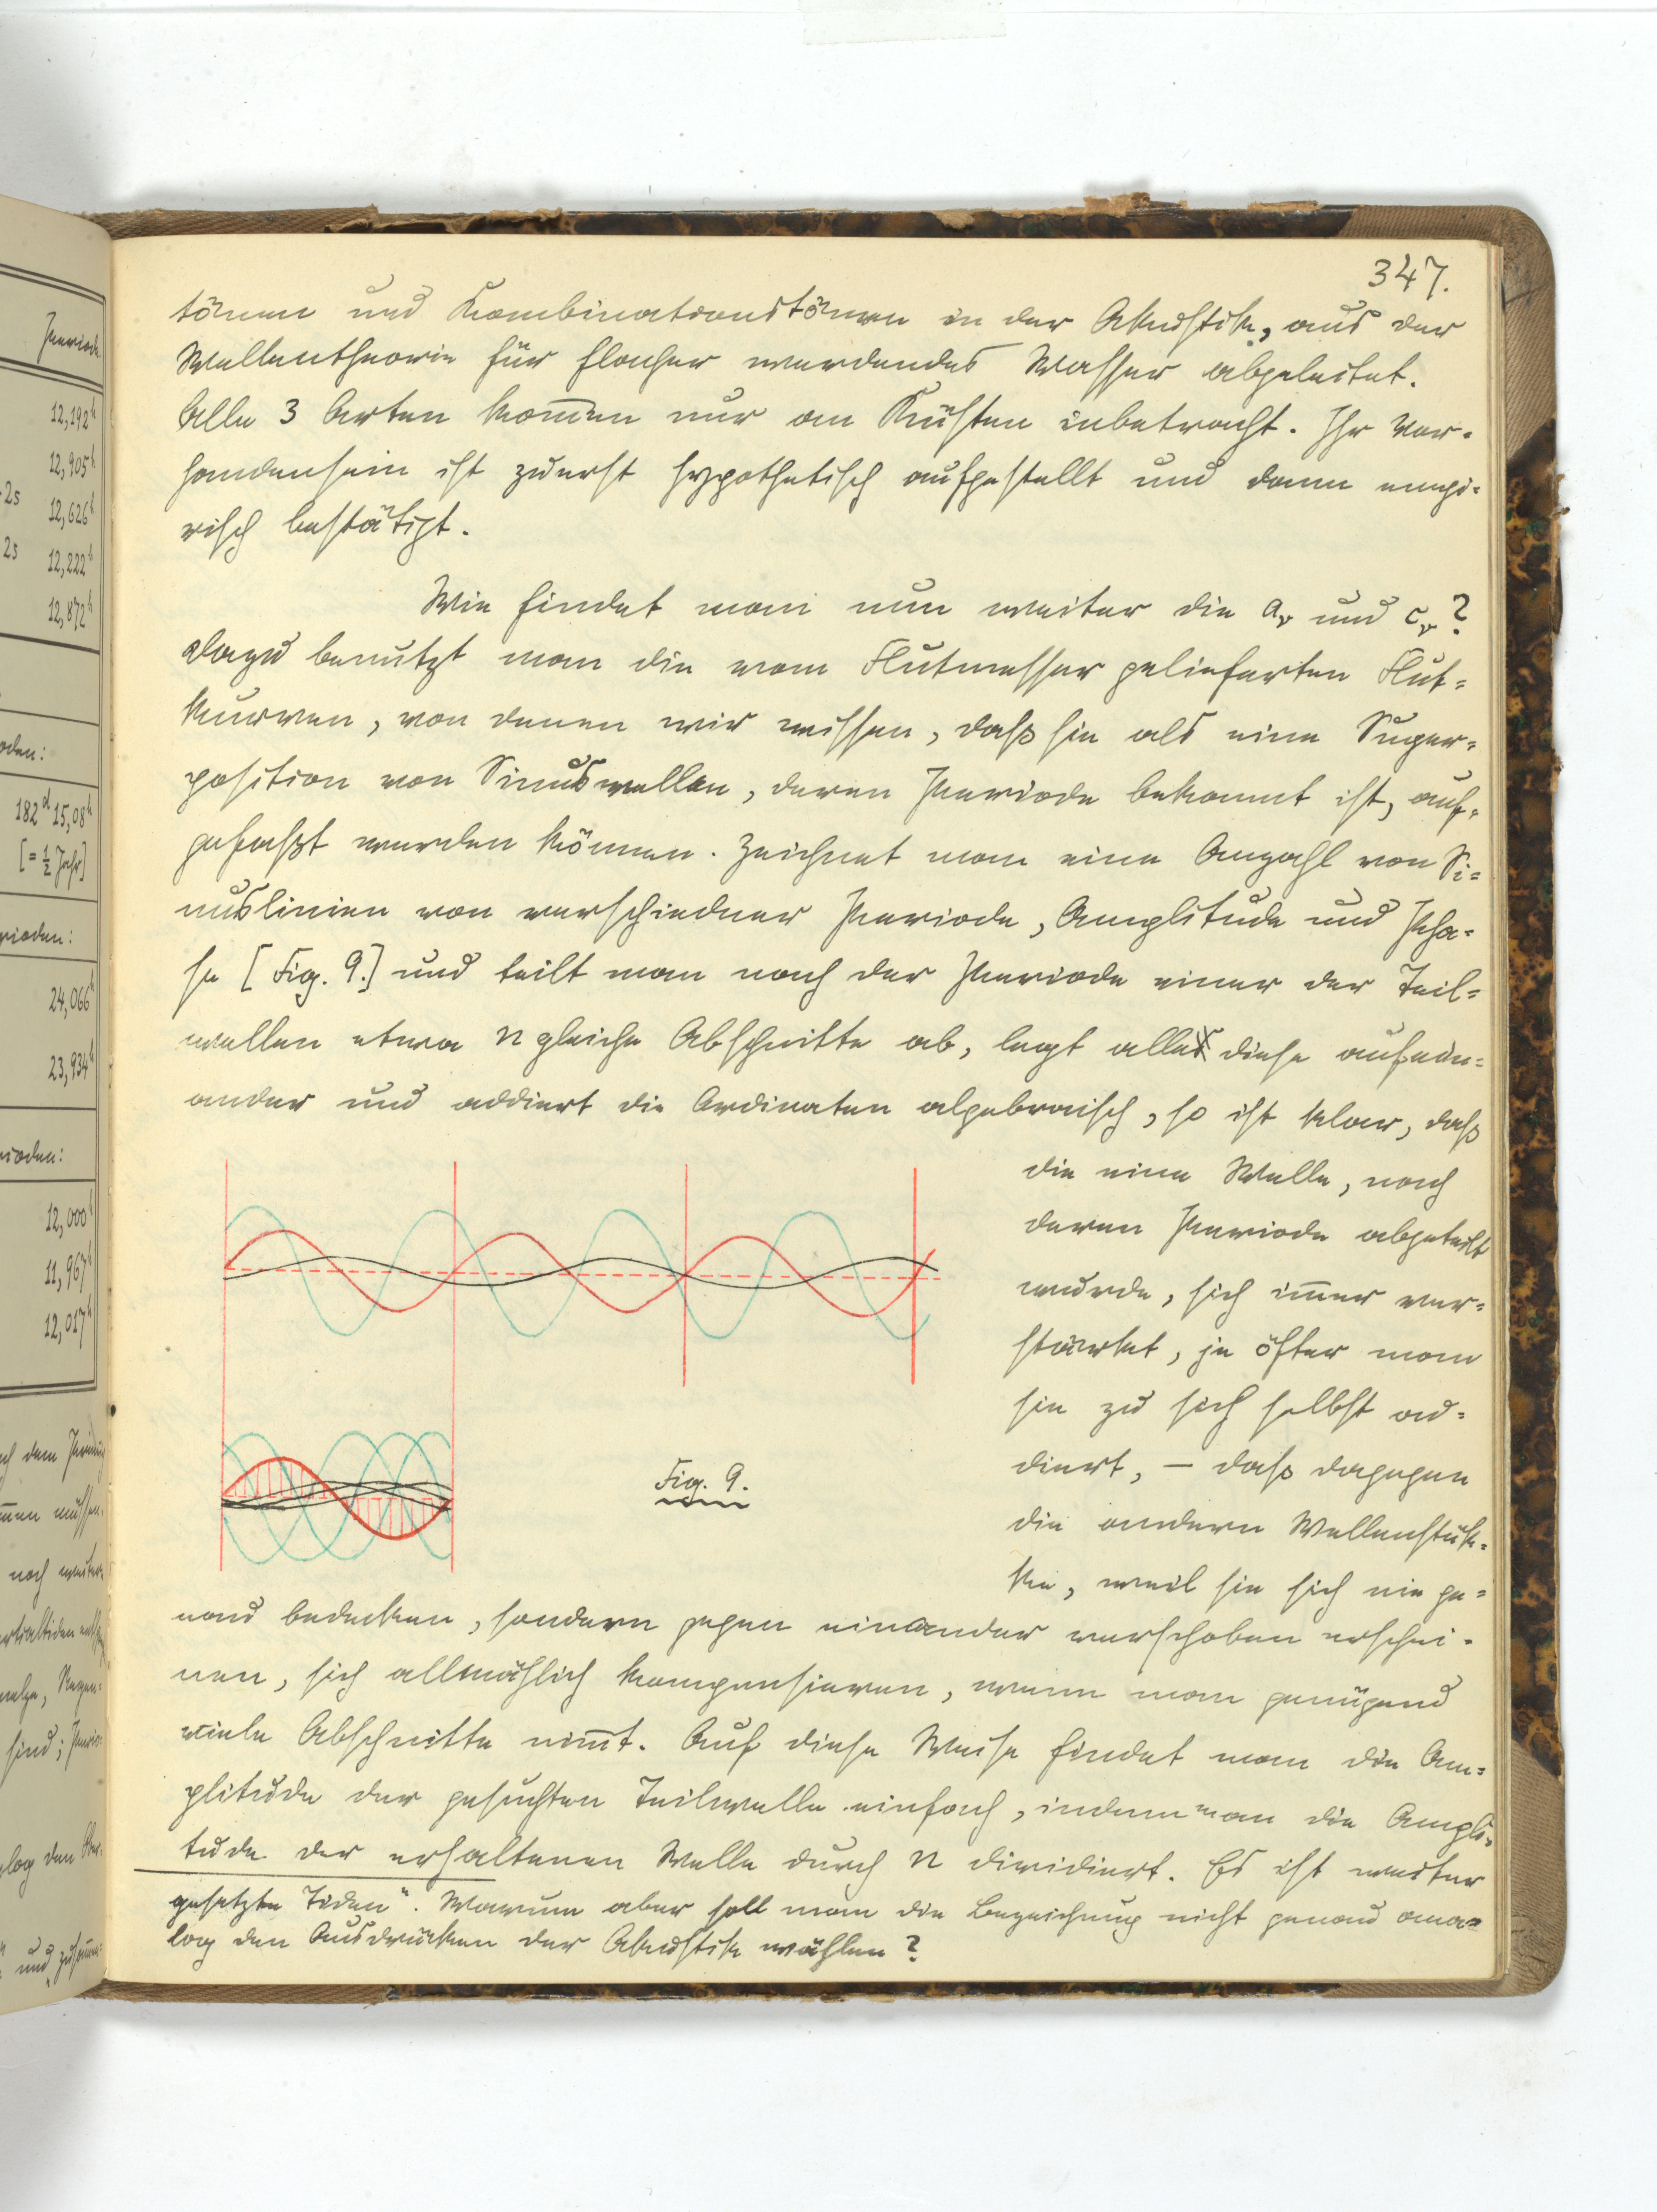 Periode
12,192h
12,905h
2s 12,626h
2s 12,222h
12,872h
oden:
182d 15,08h
[= ½ Jahr]
rioden:
24,066h
23,934h
rioden:
12,000h
11,967h
12,017h
347.
tönen und Kombinationstönen in der Akustik, aus der
Wellentheorie für flacher werdendes Wasser abgeleitet.
Alle 3 Arten kom̅en nur an Küsten inbetracht. Ihr Vor-
handensein ist zuerst hypothetisch aufgestellt und dann empi-
risch bestätigt.
Wie findet man nun weiter die aᵥ und cᵥ?
Dazu benutzt man die vom Flutmesser gelieferten Flut=
kurven, von denen wir wissen, daß sie als eine Super=
position von Sinuswellen, deren Periode bekannt ist, auf-
gefaßt werden können. Zeichnet man eine Anzahl von Si=
nuslinien von verschiedner Periode, Amplitude und Pha=
se [Fig. 9.] und teilt man nach der Periode einer der Teil=
wellen etwa n gleiche Abschnitte ab, legt alle diese aufein=
ander und addiert die Ordinaten algebraisch, so ist klar, daß
die eine Welle, nach
deren Periode abgeteilt
wurde, sich im̅er ver=
stärket, je öfter man
sie zu sich selbst ad=
diert, – daß dagegen
die andern Wellenstük=
ke, weil sie sich nie ge=
Fig. 9.
nau bedecken, sondern gegen einander verschoben erschei-
nen, sich allmählich kompensieren, wenn man genügend
viele Abschnitte nim̅t. Auf diese Weise findet man die Am=
plitude der gesuchten Teilwelle einfach, indem man die Ampli=
tude der erhaltenen Welle durch n dividiert. Es ist weiter
gesetzte Tiden“. Warum aber soll man die Bezeichnung nicht genau ana=
log den Ausdrücken der Akustik wählen?